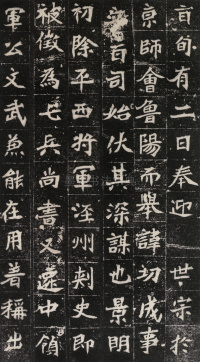 旬有二日奉迎 世宗於
京師會魯陽而舉諱切成事
立百司始伏其深謀也景明
初除平西將軍涇州刺史即
被徵為七兵尚書又遷中領
軍公文武兼能在用着稱出